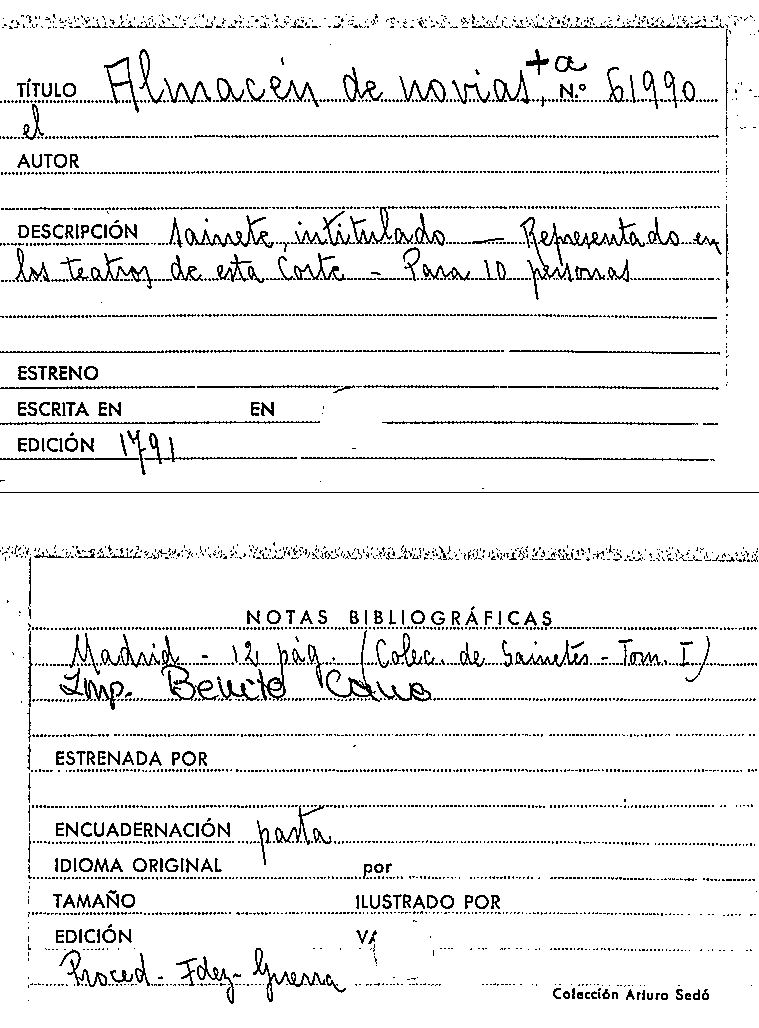 TÍTULO Almacén de novias, +a N.º 61990
el
AUTOR
DESCRIPCIÓN Sainete, intitulado — Representado en
los teatros de esta Corte - Para 10 personas
ESTRENO
ESCRITA EN EN
EDICIÓN 1791
NOTAS BIBLIOGRÁFICAS
Madrid - 12 pág. (Colec. de Sainetes - Tom. I)
Imp. Benito Cano
ESTRENADA POR
ENCUADERNACIÓN pasta
IDIOMA ORIGINAL por
TAMAÑO ILUSTRADO POR
EDICIÓN
Proced - Fdez - Guerra
Colección Arturo Sedó